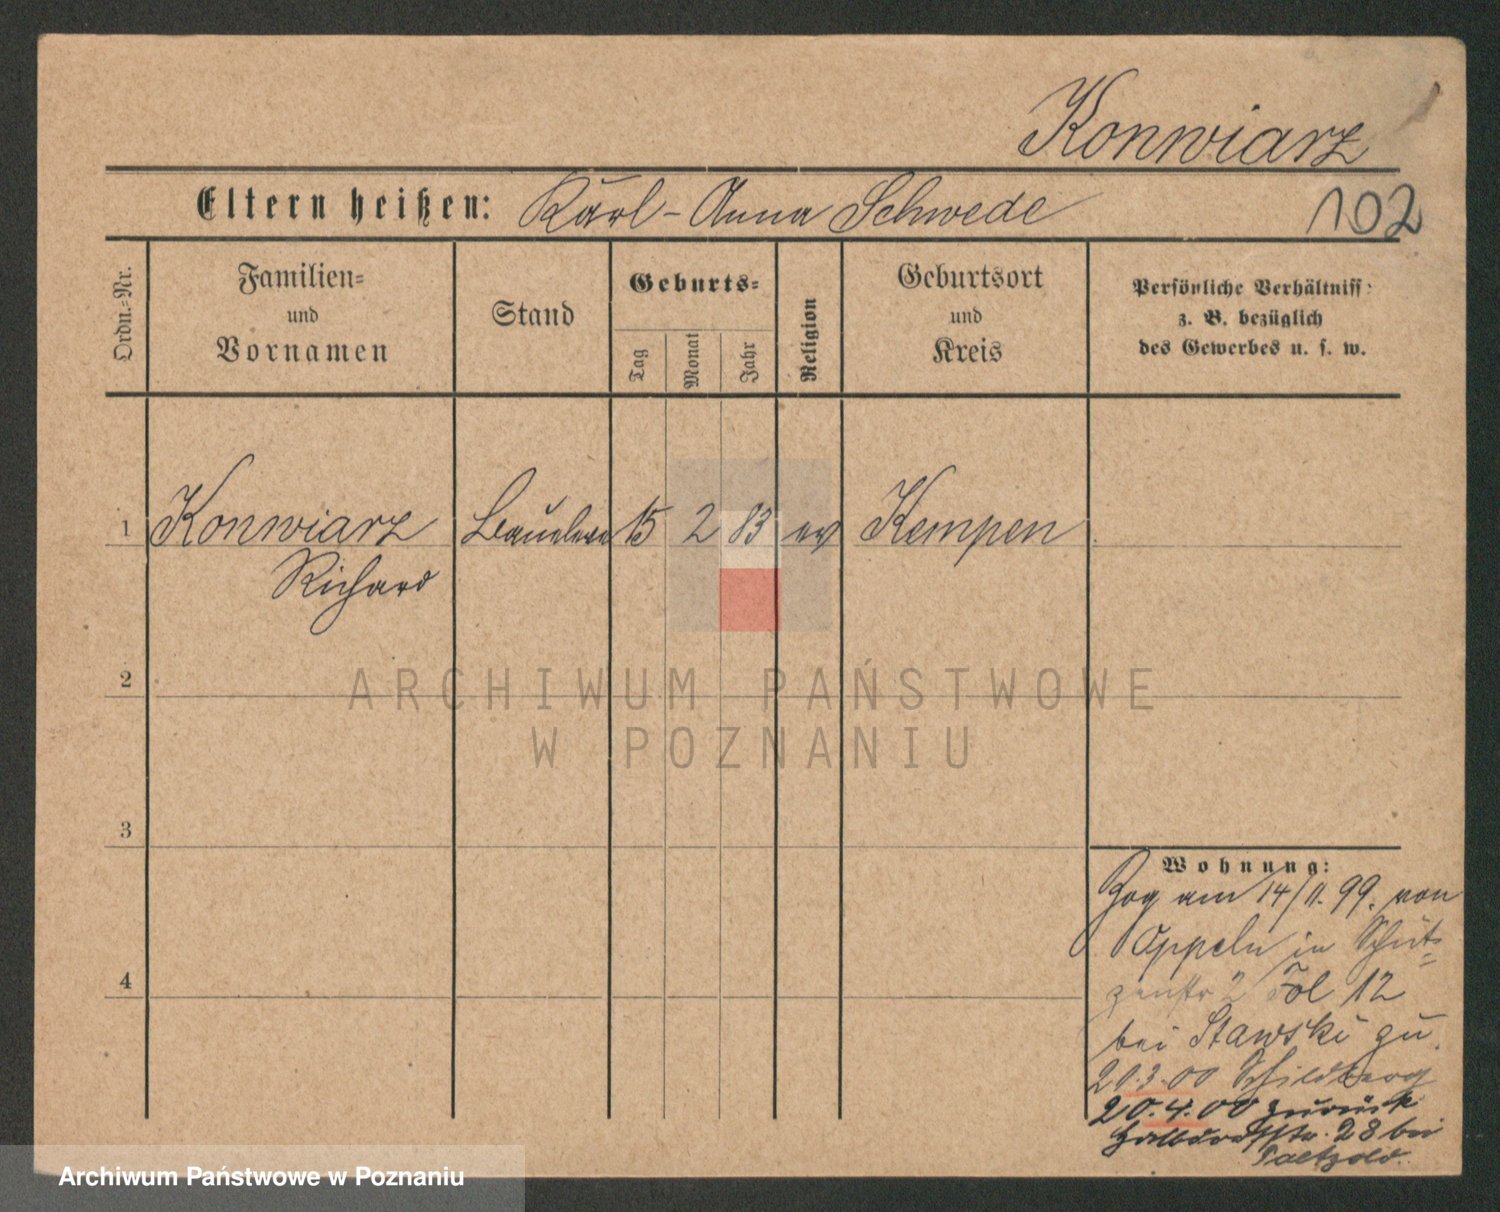 Konwiarz
Eltern heißen: Karl - Anna Schwede
102
Ordn.-Nr.
Familien-
und
Vornamen
Stand
Geburts-
Tag
Monat
Jahr
Religion
Geburtsort
und
Kreis
Persönliche Verhältniss:
z. B. bezüglich
des Gewerbes u. s. w.
1 Konwiarz Baueleve 15 2 83 ev Kempen
Richard
2
ARCHIWUM PAŃSTWOWE
W POZNANIU
3
4
Wohnung:
Zog am 14/11. 99. von
Oppeln in Schüt-
zenstr 2 Fol 12
bei Stawski zu.
20.3.00 Schildberg
20.4.00 zurück
Halbdorfstr. 28 bei
Paetzold.
Archiwum Państwowe w Poznaniu